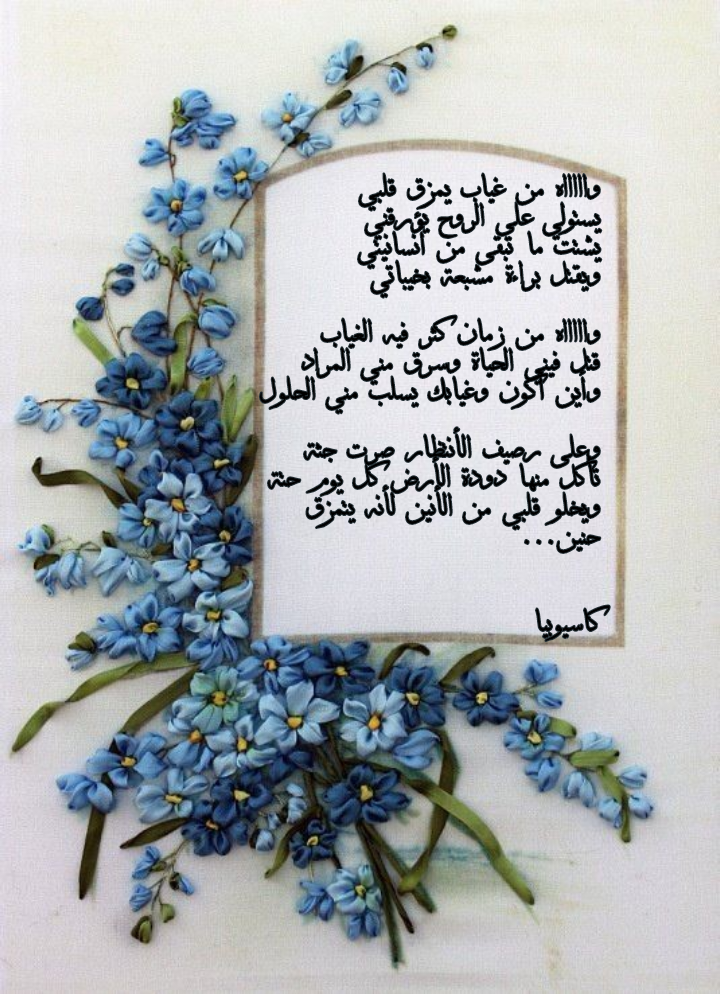 واااااه من غياب يمزق قلبي
يستولي على الروح يؤرقني
يشتت ما تبقى من أنسانيتي
ويقتل براءة مشبعة بخيباتي
واااااه من زمان كثر فيه الغياب
قتل فيني الحياة وسرق مني المراد
وأين أكون وغيابك يسلب مني الحلول
وعلى رصيف الأنتظار صرت جثة
تأكل منها دودة الأرض كل يوم حتة
ويخلو قلبي من الأنين لأنه يتمزق
حنين...
كاسيوبيا